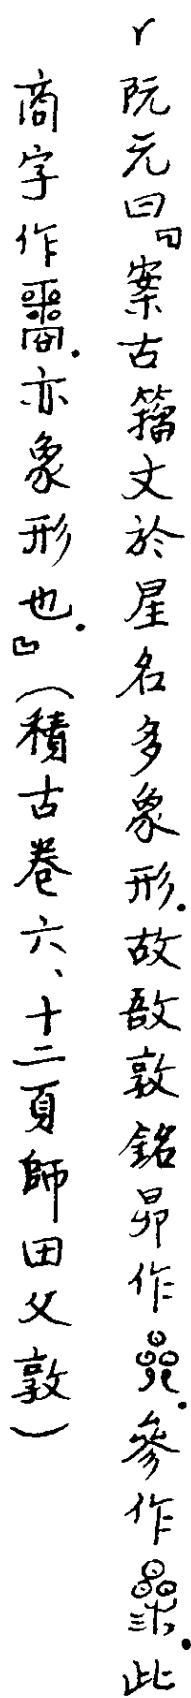 阮元曰『案古籀文於星名多象形.故敔敦銘昴作.參作.此
商字作.亦象形也.』(積古卷六、十二頁師田父敦)